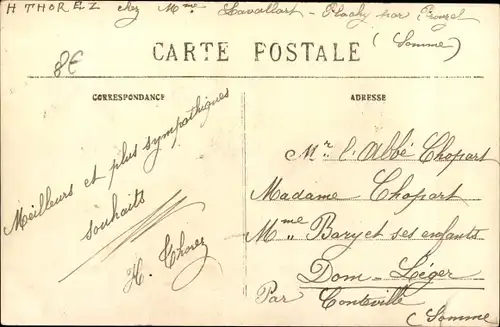 H THOREZ chez Mme Lavallart - Plachy par Prouzel
(Somme)
8€
CARTE POSTALE
CORRESPONDANCE
ADRESSE
Meilleurs et plus sympathiques
souhaits
H. Thorez
Mr. l'Abbé Chopart
Madame Chopart
Mme Bary et ses enfants
Dom-Léger
Par Conteville
(Somme)